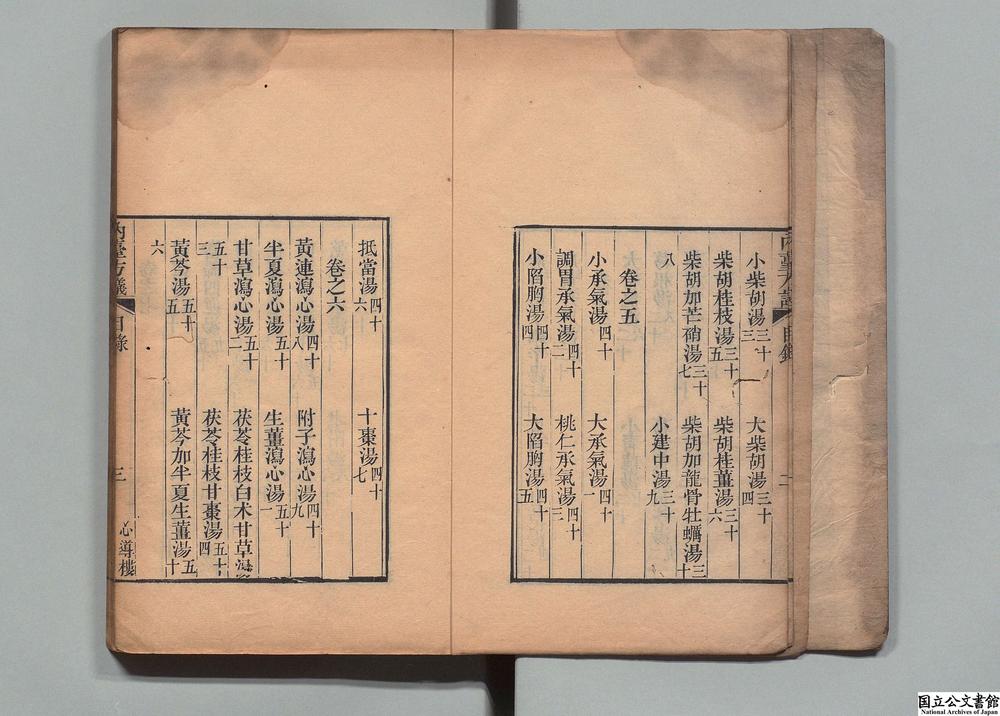 小柴胡湯三十三 大柴胡湯三十四
柴胡桂枝湯三十五 柴胡桂薑湯三十六
柴胡加芒硝湯三十七 柴胡加龍骨牡蠣湯三十
八 小建中湯三十九
卷之五
小承氣湯四十 大承氣湯四十一
調胃承氣湯四十二 桃仁承氣湯四十三
小陷胸湯四十四 大陷胸湯四十五
抵當湯四十六 十棗湯四十七
卷之六
黃連瀉心湯四十八 附子瀉心湯四十九
半夏瀉心湯五十 生薑瀉心湯五十一
甘草瀉心湯五十二 茯苓桂枝白术甘草湯
五十三 茯苓桂枝甘棗湯五十四
黃芩湯五十五 黃芩加半夏生薑湯五十
六
內臺方議 目錄 三 心導樓
国立公文書館
National Archives of Japan